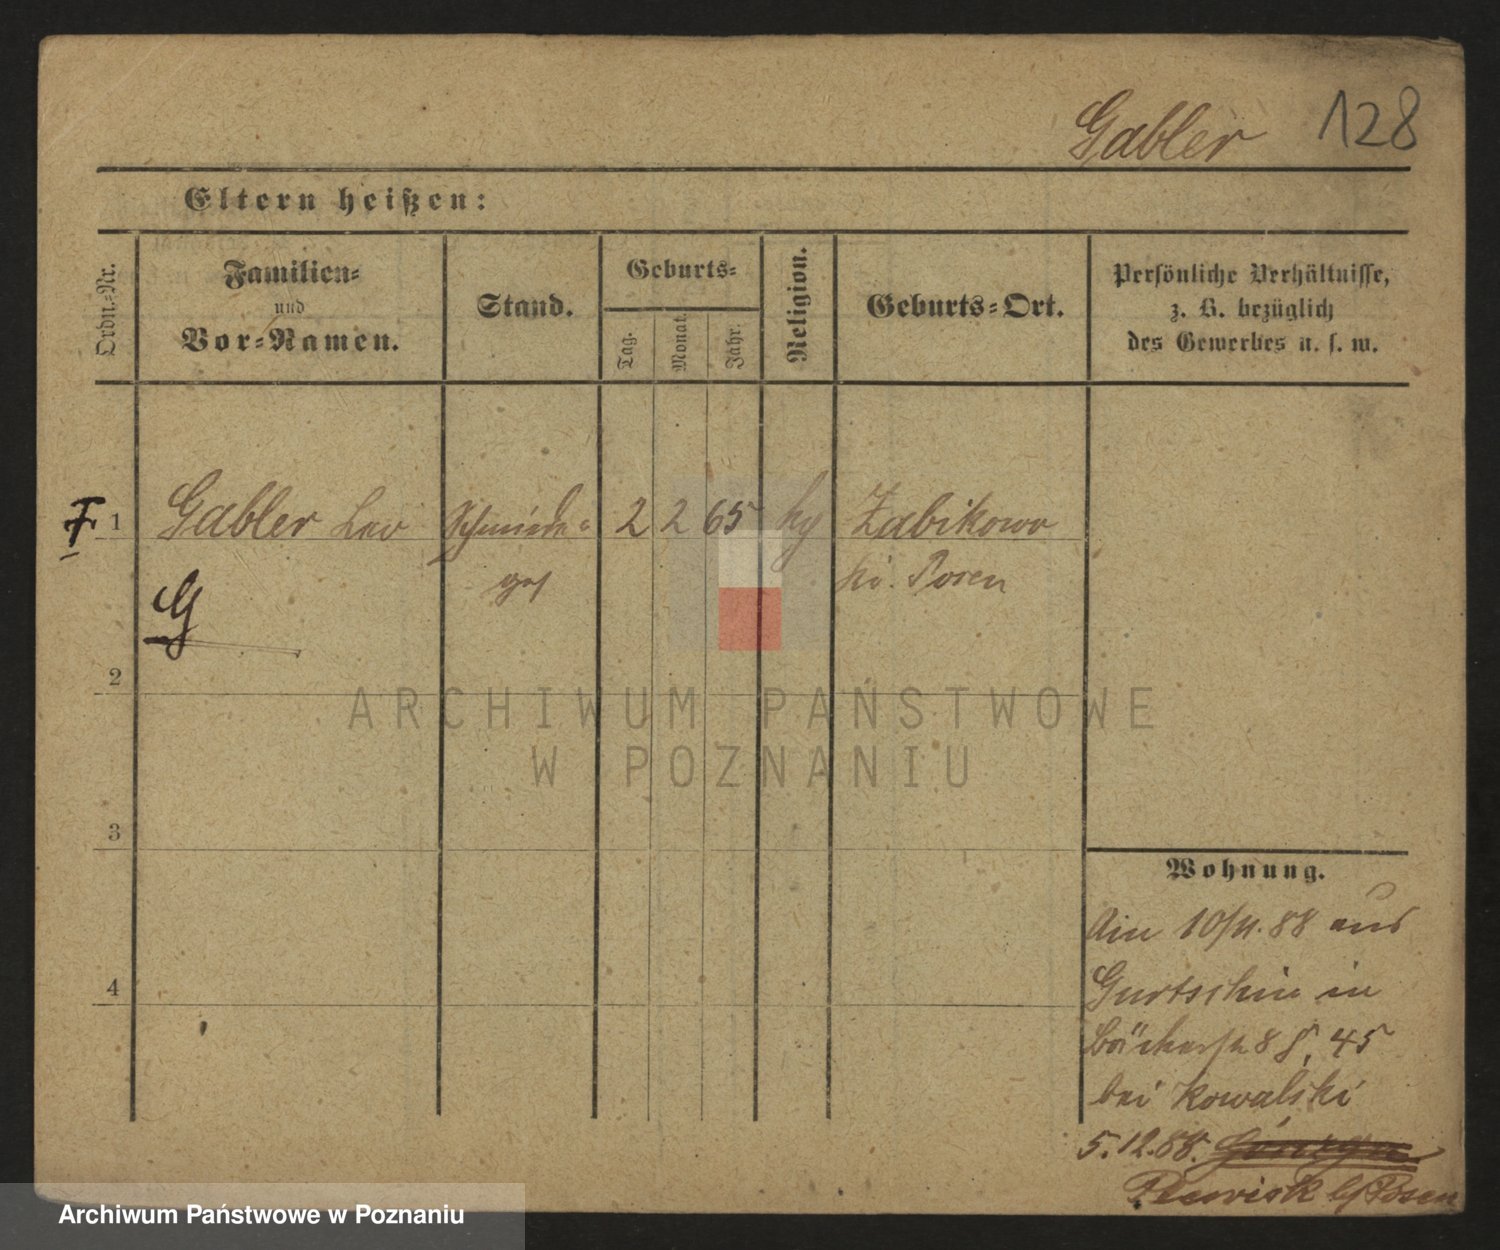 Gabler 128
Eltern heißen:
Ordn.-Nr.
Familien-
und
Vor-Namen.
Stand.
Geburts-
Tag.
Monat.
Jahr.
Religion.
Geburts-Ort.
Persönliche Verhältnisse,
z. B. bezüglich
des Gewerbes u. s. w.
F 1 Gabler Leo Schmiede- 2 2 65 Zabikowo
ges Posen
G
2
3
4
Wohnung.
10/11.88 aus
Gurtschin in
8 45
bei Kowalski
5.12.88.
Plewisk b/Posen
ARCHIWUM PAŃSTWOWE
W POZNANIU
Archiwum Państwowe w Poznaniu